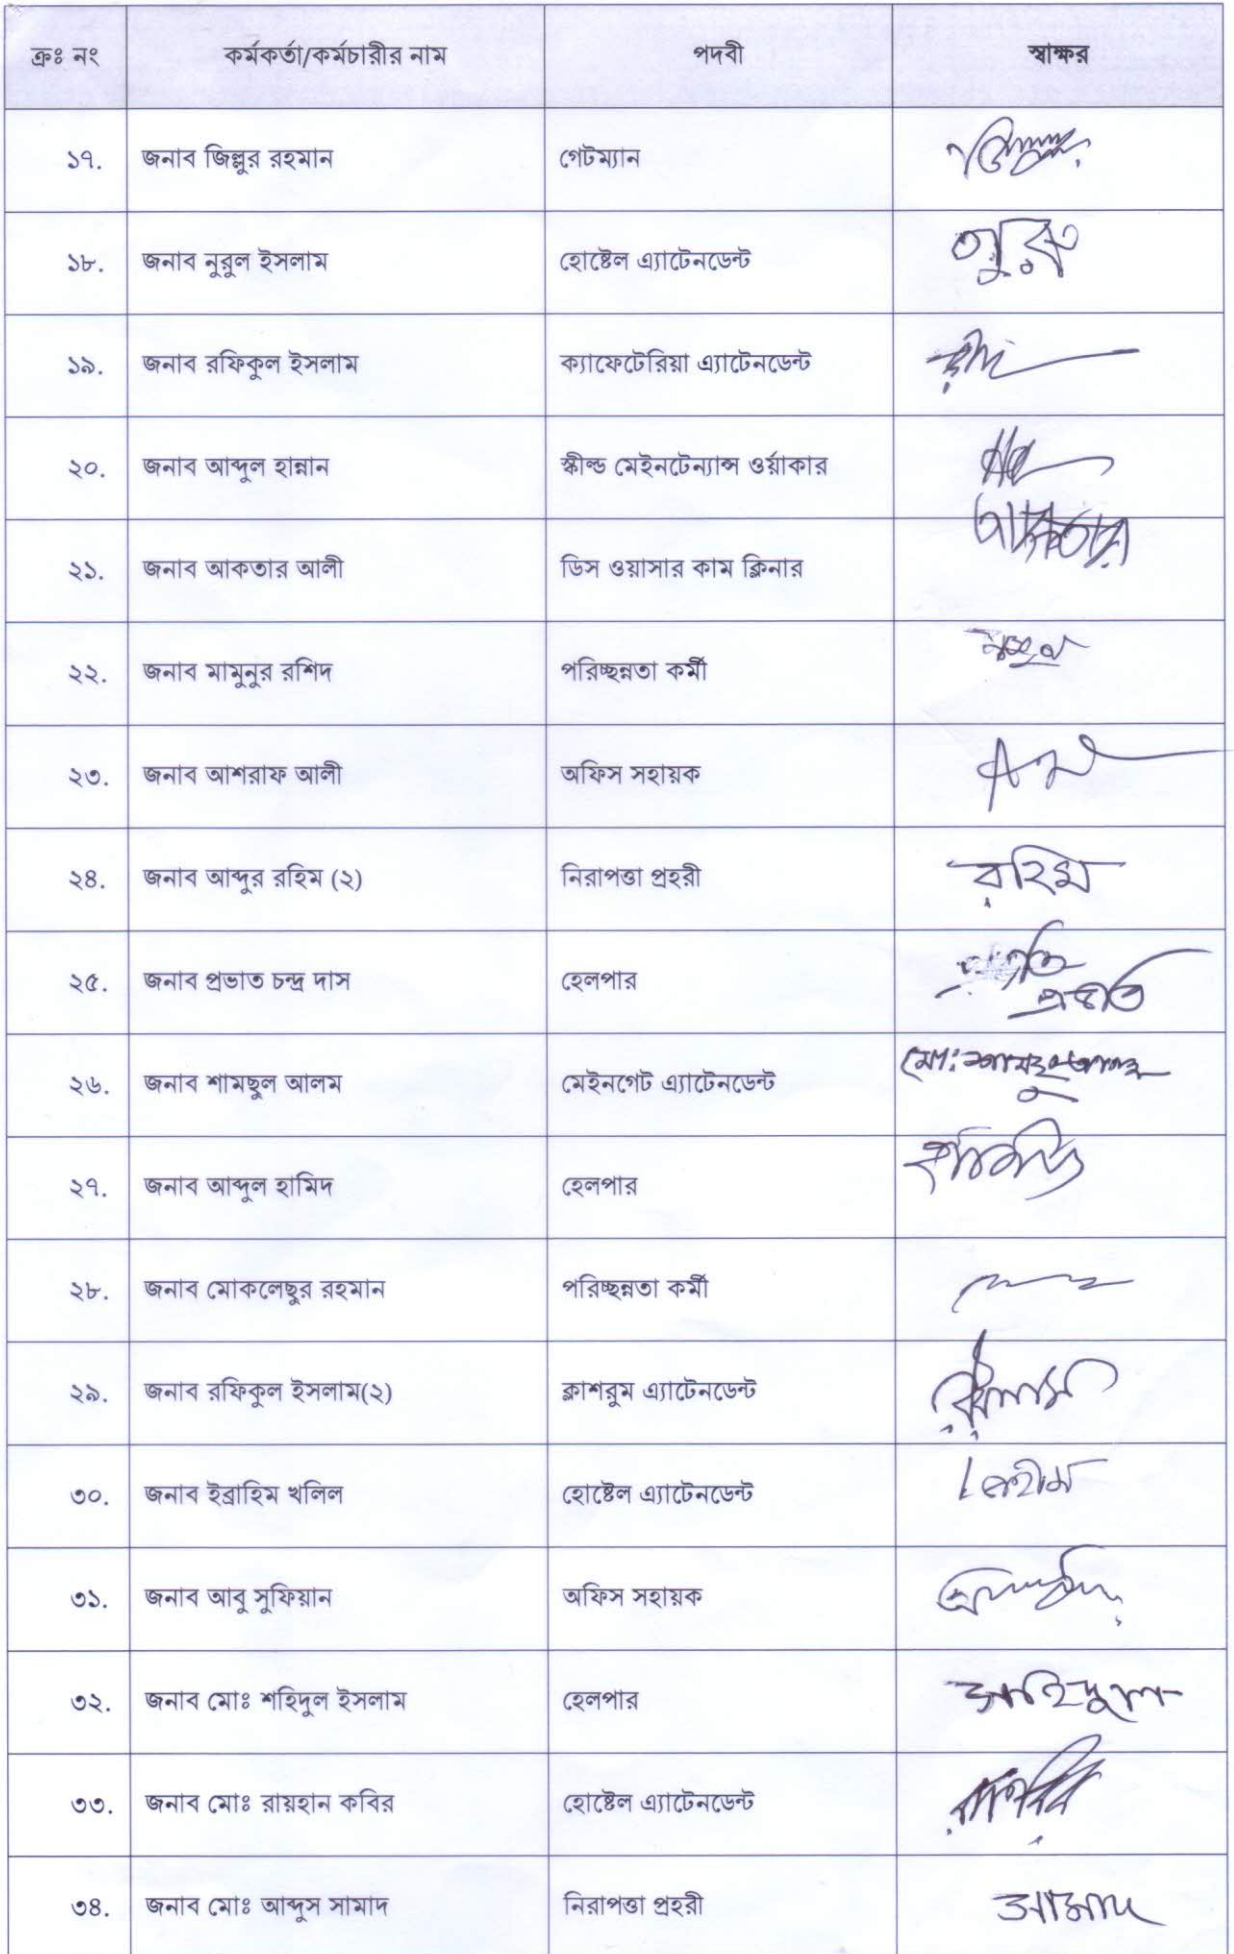 ক্রঃ নং কর্মকর্তা/কর্মচারীর নাম পদবী স্বাক্ষর
১৭. জনাব জিল্লুর রহমান গেটম্যান
১৮. জনাব নুরুল ইসলাম হোষ্টেল এ্যাটেনডেন্ট
১৯. জনাব রফিকুল ইসলাম ক্যাফেটেরিয়া এ্যাটেনডেন্ট
২০. জনাব আব্দুল হান্নান ফ্বীল্ড মেইনটেন্যান্স ওর্য়াকার
২১. জনাব আকতার আলী ডিস ওয়াসার কাম ক্লিনার
২২. জনাব মামুনুর রশিদ পরিচ্ছন্নতা কর্মী
২৩. জনাব আশরাফ আলী অফিস সহায়ক
২৪. জনাব আব্দুর রহিম (২) নিরাপত্তা প্রহরী রহিম
২৫. জনাব প্রভাত চন্দ্র দাস হেলপার
২৬. জনাব শামছুল আলম মেইনগেট এ্যাটেনডেন্ট
২৭. জনাব আব্দুল হামিদ হেলপার
২৮. জনাব মোকলেছুর রহমান পরিচ্ছন্নতা কর্মী
২৯. জনাব রফিকুল ইসলাম(২) ক্লাশরুম এ্যাটেনডেন্ট
৩০. জনাব ইব্রাহিম খলিল হোষ্টেল এ্যাটেনডেন্ট
৩১. জনাব আবু সুফিয়ান অফিস সহায়ক
৩২. জনাব মোঃ শহিদুল ইসলাম হেলপার
৩৩. জনাব মোঃ রায়হান কবির হোষ্টেল এ্যাটেনডেন্ট
৩৪. জনাব মোঃ আব্দুস সামাদ নিরাপত্তা প্রহরী